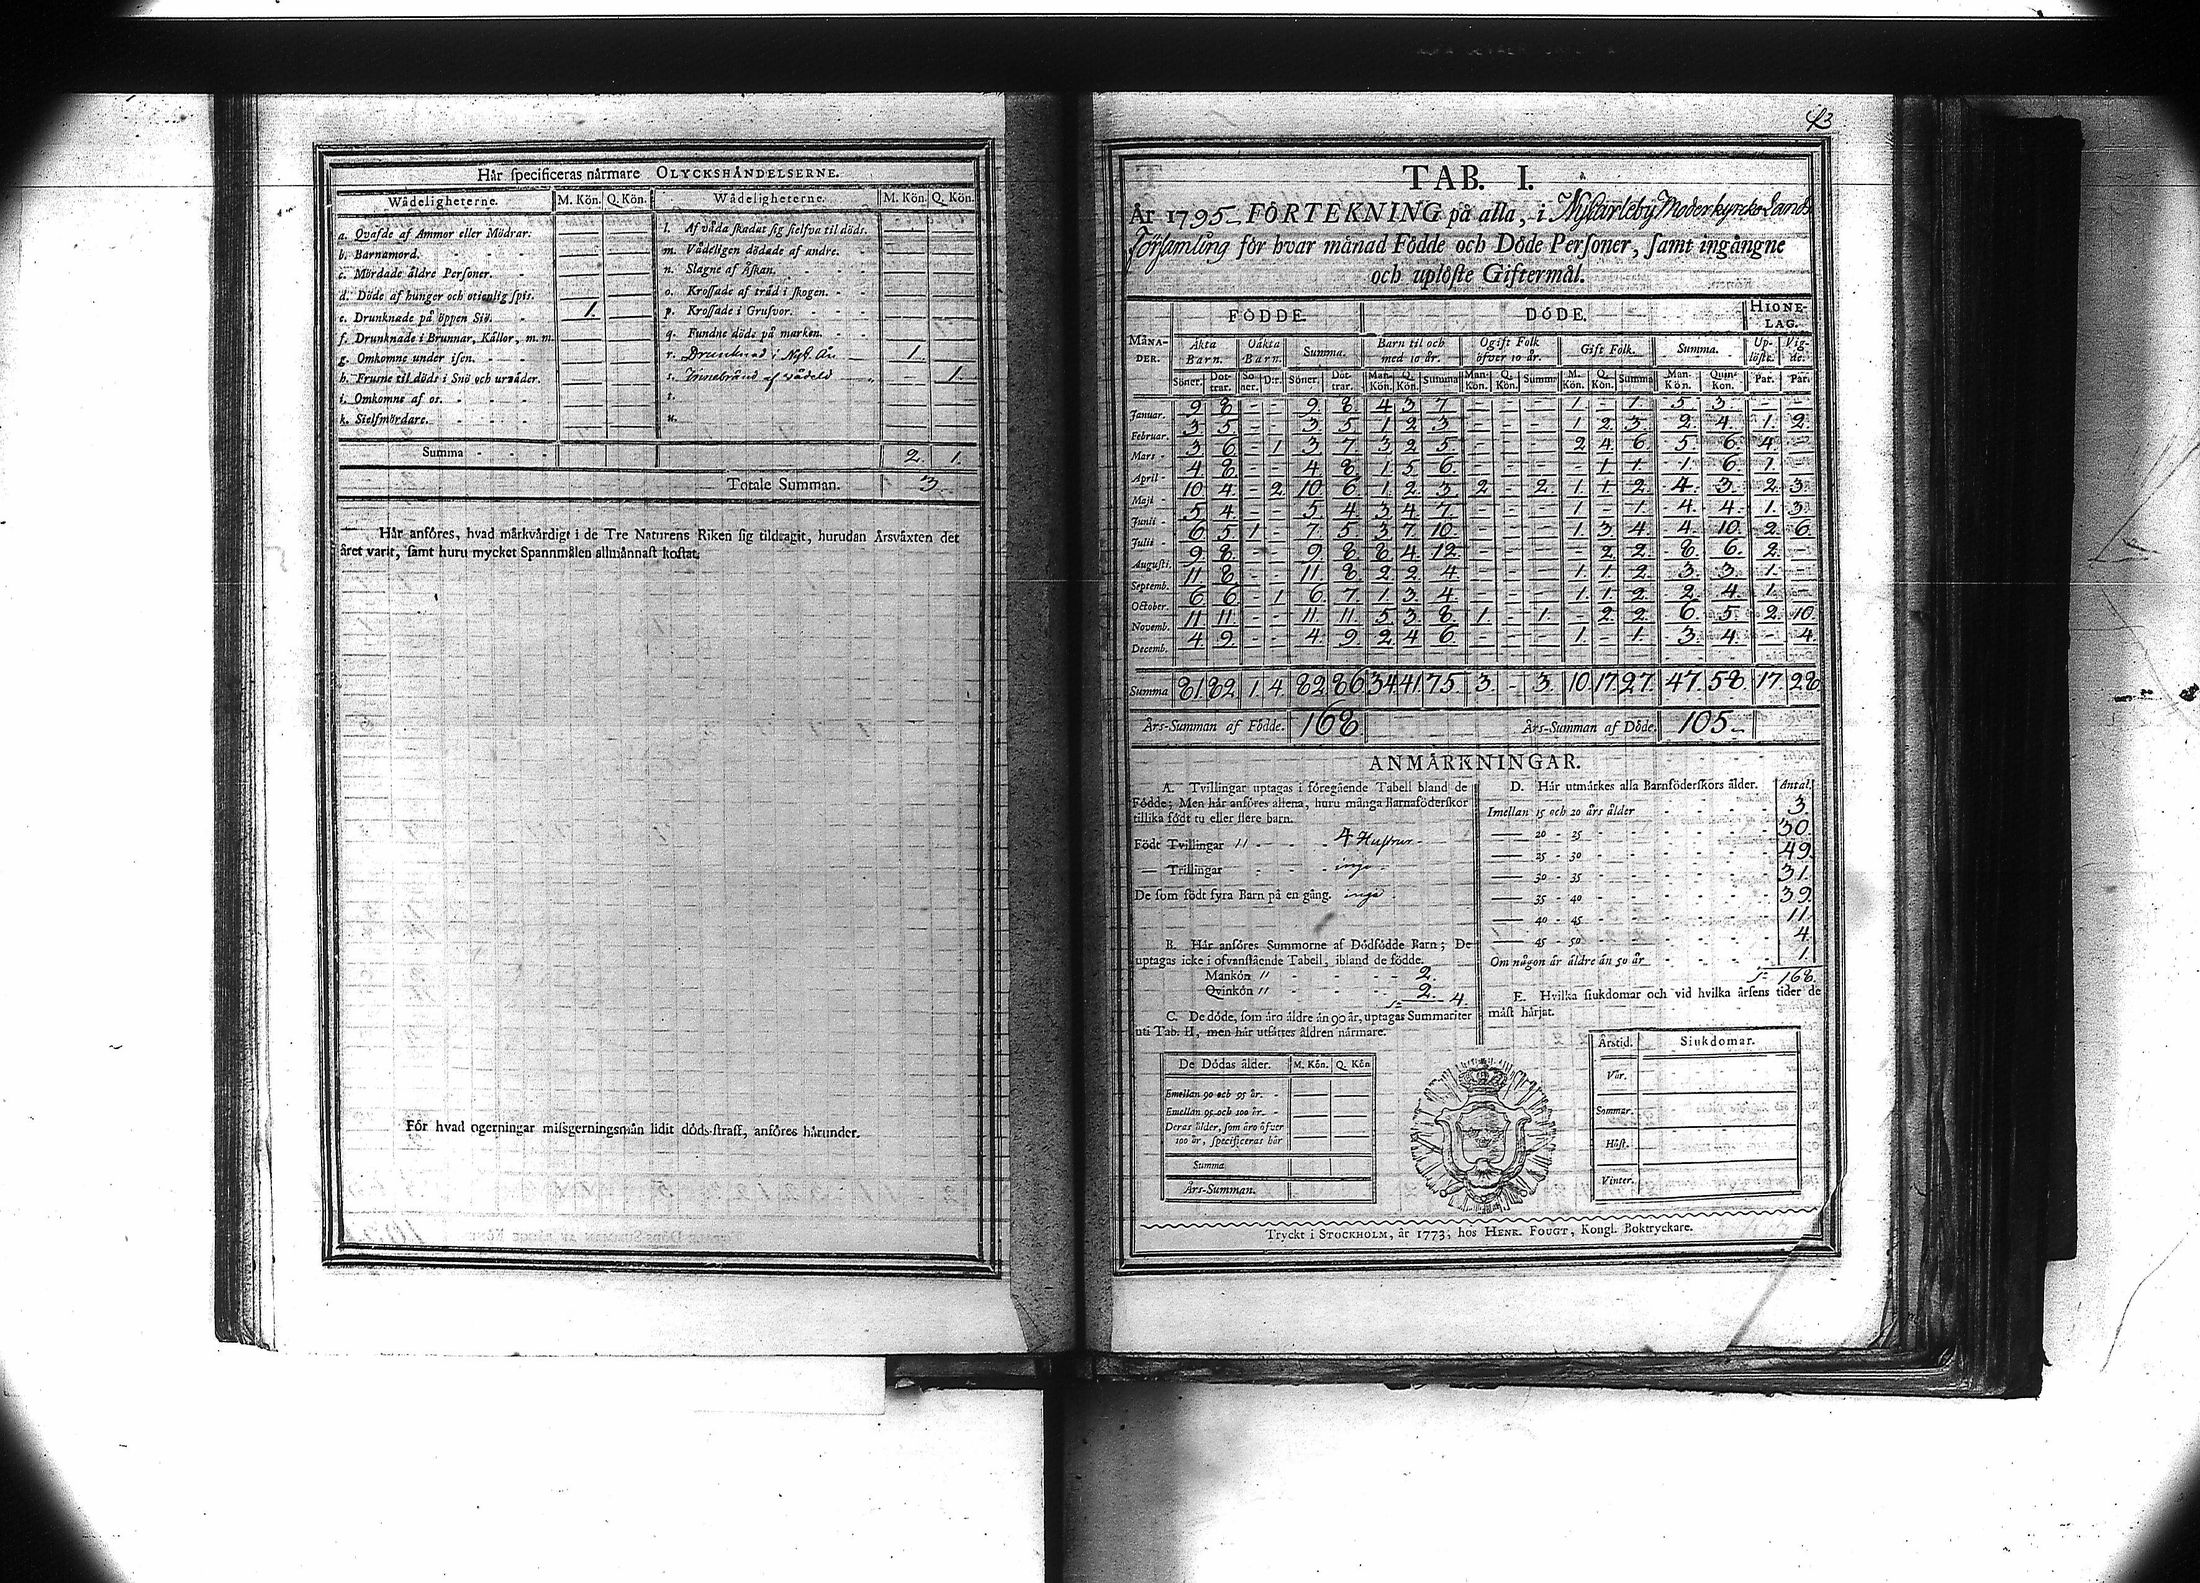 Här specificeras närmare OLYCKSHÄNDELSERNE.
Wådeligheterne. M. Kön. Q. Kön. Wådeligheterne. M. Kön. Q. Kön.
a. Qvafde af Ammor eller Mödrar. l. Af våda skadat sig sielfva til döds.
b. Barnamord. m. Vådeligen dödade af andre.
c. Mördade äldre Personer. n. Slagne af Åskan.
d. Döde af hunger och otienlig spis. o. Krossade af träd i skogen.
e. Drunknade på öppen Siö. 1. p. Krossade i Grufvor.
f. Drunknade i Brunnar, Källor, m. m. q. Fundne döde på marken.
g. Omkomne under isen. r. Drunknad i Nyk. Ån 1
h. Frusne til döds i Snö och urväder. s. Innebränd af vådeld 1.
i. Omkomne af os. t.
k. Sielfmördare. u.
Summa 2. 1.
Totale Summan. 3
Här anföres, hvad märkvärdigt i de Tre Naturens Riken sig tildragit, hurudan Årsväxten det
året varit, samt huru mycket Spannmålen allmännast kostat.
För hvad ogerningar missgerningsmän lidit döds-straff, anföres härunder.
TAB. I.
År 1795 FÖRTEKNING på alla, i Nykarleby Moderkyrko Lands
Församling för hvar månad Födde och Döde Personer, samt ingångne
och uplöste Giftermål.
MÅNADER. FÖDDE. DÖDE. HIONELAG.
Äkta Barn. Oäkta Barn. Summa. Barn til och med 10 år. Ogift Folk öfver 10 år. Gift Folk. Summa. Uplöste. Vigde.
Söner. Dottrar. Soner. Dtr. Söner. Döttrar. Man-Kön. Q. Kön. Summa Man-Kön. Q. Kön. Summa M. Kön. Q. Kön. Summa Man-Kön. Quin-Kon. Par. Par.
Januar. 9 8 - - 9 8 4 3 7 - - - 1 - 1 5 3 - -
Februar. 3 5 - - 3 5 1 2 3 - - - 1 2 3 2 4 1 2
Mars 3 6 - 1 3 7 3 2 5 - - - 2 4 6 5 6 4 -
April 4 8 - - 4 8 1 5 6 - - - - 1 1 1 6 1 -
Maji 10 4 - 2 10 6 1 2 3 2 - 2 1 1 2 4 3 2 3
Junii 5 4 - - 5 4 3 4 7 - - - 1 - 1 4 4 1 3
Julii 6 5 1 - 7 5 3 7 10 - - - 1 3 4 4 10 2 6
Augusti. 9 8 - - 9 8 8 4 12 - - - - 2 2 8 6 2 -
Septemb. 11 8 - - 11 8 2 2 4 - - - 1 1 2 3 3 1 -
October. 6 6 - 1 6 7 1 3 4 - - - 1 1 2 2 4 1 -
Novemb. 11 11 - - 11 11 5 3 8 1 - 1 - 2 2 6 5 2 10
Decemb. 4 9 - - 4 9 2 4 6 - - - 1 - 1 3 4 - 4
Summa 81 82 1 4 82 86 34 41 75 3 - 3 10 17 27 47 58 17 28
Års-Summan af Födde. 168 Års-Summan af Döde. 105
ANMÄRKNINGAR.
A. Tvillingar uptagas i föregående Tabell bland de
Födde; Men här anföres allena, huru många Barnaföderskor
tillika födt tu eller flere barn.
Födt Tvillingar 4 Hustrur
— Trillingar inga
De som födt fyra Barn på en gång. inga
B. Här anföres Summorne af Dödfödde Barn; De
uptagas icke i ofvanstående Tabell, ibland de födde.
Mankön 2.
Qvinkön 2. 4.
C. De döde, som äro äldre än 90 år, uptagas Summariter
uti Tab. II, men här utsättes åldren närmare.
De Dödas ålder. M. Kön. Q. Kön
Emellan 90 och 95 år.
Emellan 95 och 100 år.
Deras ålder, som äro öfver
100 år, specificeras här
Summa
Års-Summan.
D. Här utmärkes alla Barnföderskors ålder. Antal.
Imellan 15 och 20 års ålder 3
— 20 - 25 30.
— 25 - 30 49.
— 30 - 35 31.
— 35 - 40 39.
— 40 - 45 11
— 45 - 50 4.
Om någon är äldre än 50 år 1.
168
E. Hvilka siukdomar och vid hvilka årsens tider de
mäst härjat.
Årstid. Siukdomar.
Vår.
Sommar.
Höst.
Vinter.
Tryckt i STOCKHOLM, år 1773, hos HENR. FOUGT, Kongl. Boktryckare.